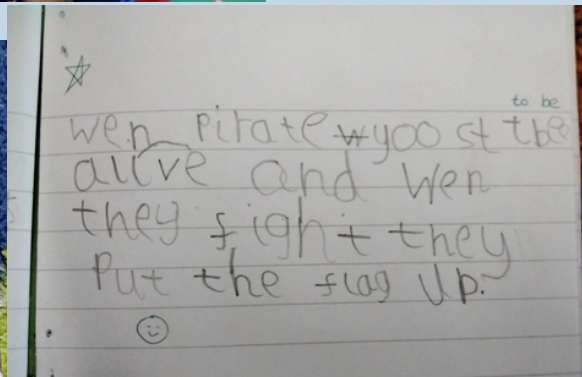 to be
wen pirate wyoo st tbe
alive and wen
they fight they
Put the flag Up.